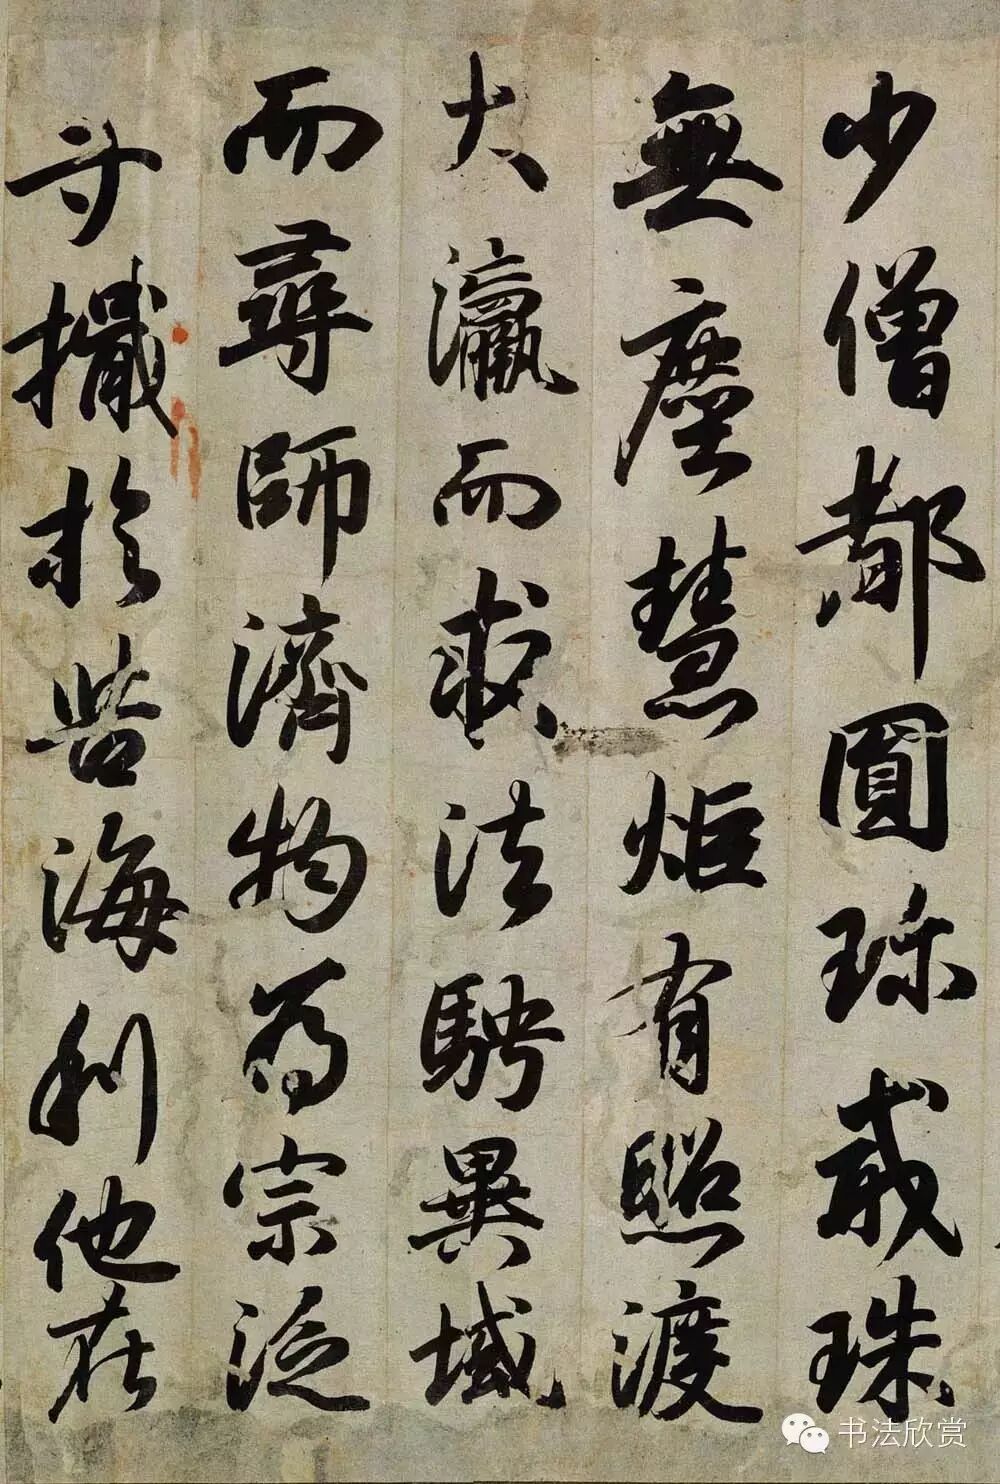 少僧都圓珍戒珠
無塵慧炬有照渡
大瀛而求法騁異域
而尋師濟物為宗泛
寸檝於苦海利他在
书法欣赏